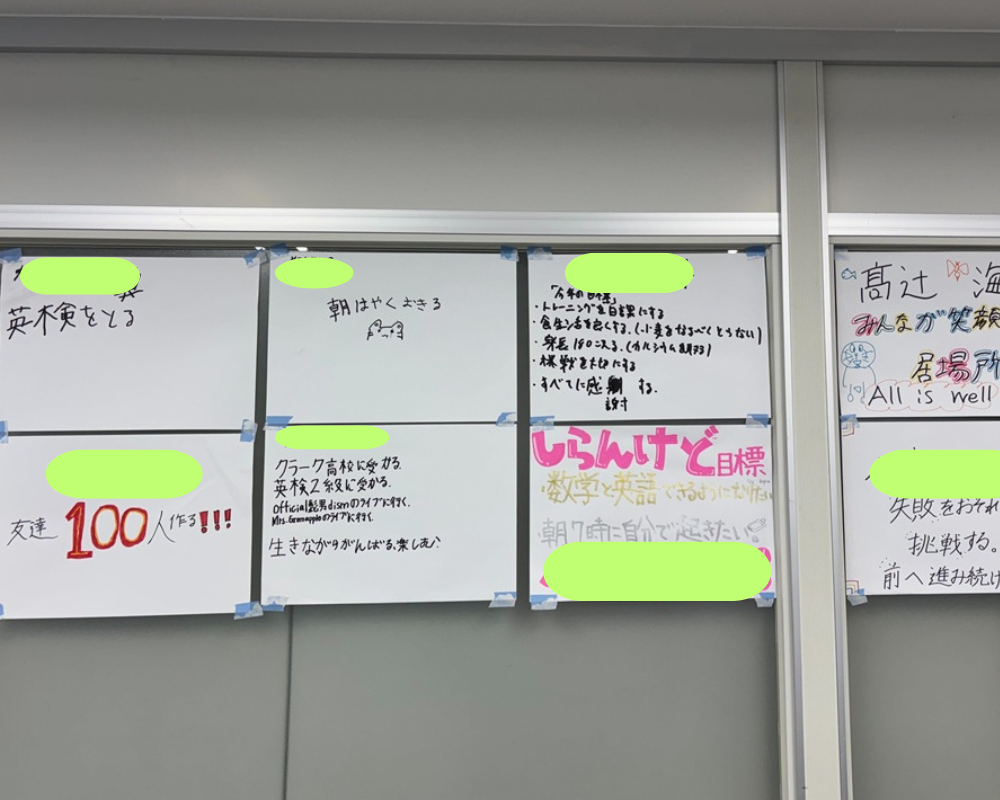 英検をとる
朝はやくおきる
「今年の目標」
・トレーニングを日課にする
・食生活を良くする。(小麦をなるべくとらない)
・身長180こえる。(カルシウム摂取する)
・挑戦を大切にする
・すべてに感謝する。
友達100人作る!!!
クラーク高校に受かる。
英検2級に受かる。
Official髭男dismのライブに行く。
Mrs.Greenappleのライブに行く。
生きながらがんばる、楽しむ♪
しらんけど目標
・数学と英語できるようになりたい
・朝7時に自分で起きたい
髙辻 海
みんなが笑顔
居場所
All is well
失敗をおそれ
挑戦する。
前へ進み続け